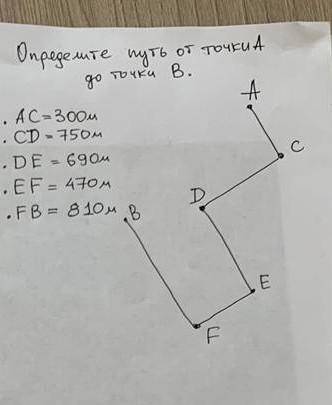 Определите путь от точки А
до точки В.
. AC=300м
. CD=750м
. DE=690м
. EF=470м
. FB=810м
A
C
D
B
E
F